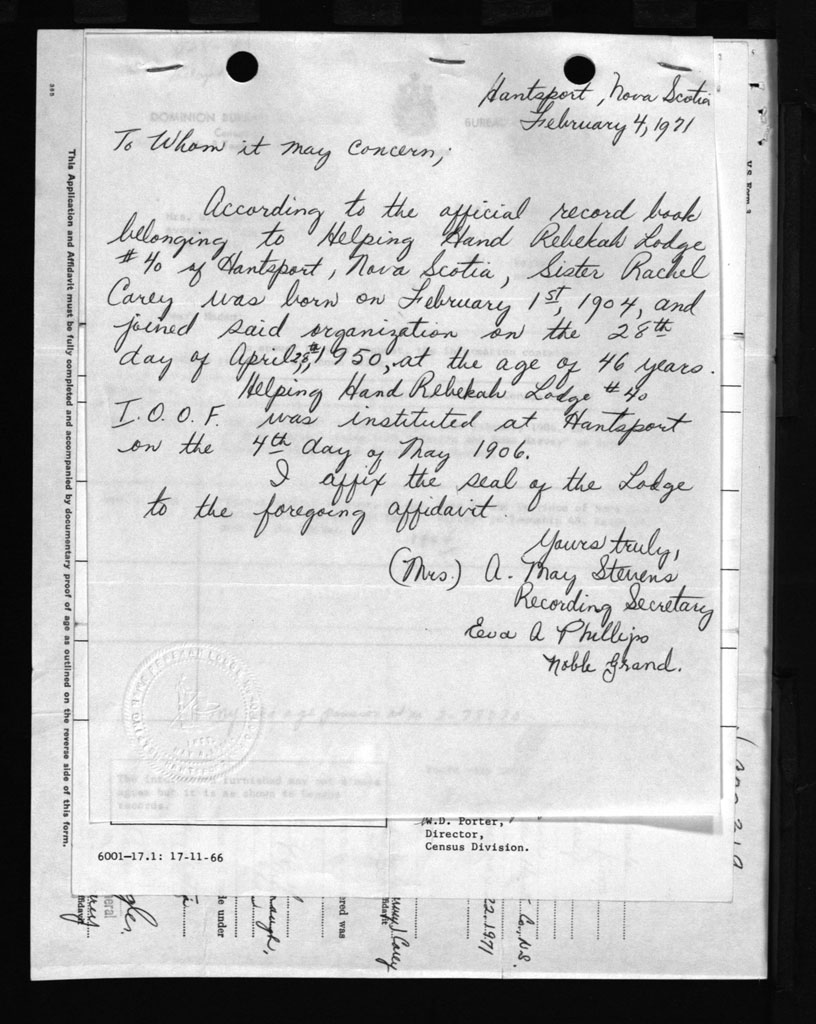 Hantsport, Nova Scotia
February 4, 1971
To Whom it may concern;
According to the official record book
belonging to Helping Hand Rebekah Lodge
#40 of Hantsport, Nova Scotia, Sister Rachel
Carey was born on February 1st, 1904, and
joined said organization on the 28th
day of April 28th, 1950, at the age of 46 years.
Helping Hand Rebekah Lodge #40
I.O.O.F. was instituted at Hantsport
on the 4th day of May 1906.
I affix the seal of the Lodge
to the foregoing affidavit.
Yours truly,
(Mrs.) A. May Stevens
Recording Secretary
Eva A Phillips
Noble Grand.
DOMINION BUREAU
The information furnished may not always
agree but it is as shown in Census
records.
W.D. Porter,
Director,
Census Division.
6001-17.1: 17-11-66
This Application and Affidavit must be fully completed and accompanied by documentary proof of age as outlined on the reverse side of this form.
V.S. Form 3
le under
ired was
22, 1971
Co., N.S.